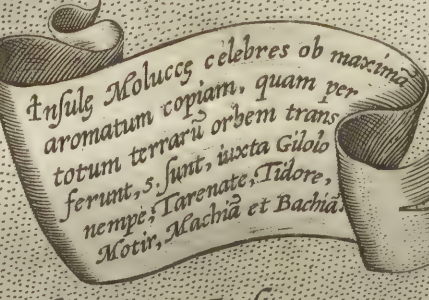 Insulę Moluccę celebres ob maximā
aromatum copiam, quam per
totum terrarū orbem trans
ferunt, 5. sunt, iuxta Gilolo
nempe; Tarenate, Tidore,
Motir, Machiā et Bachiā.